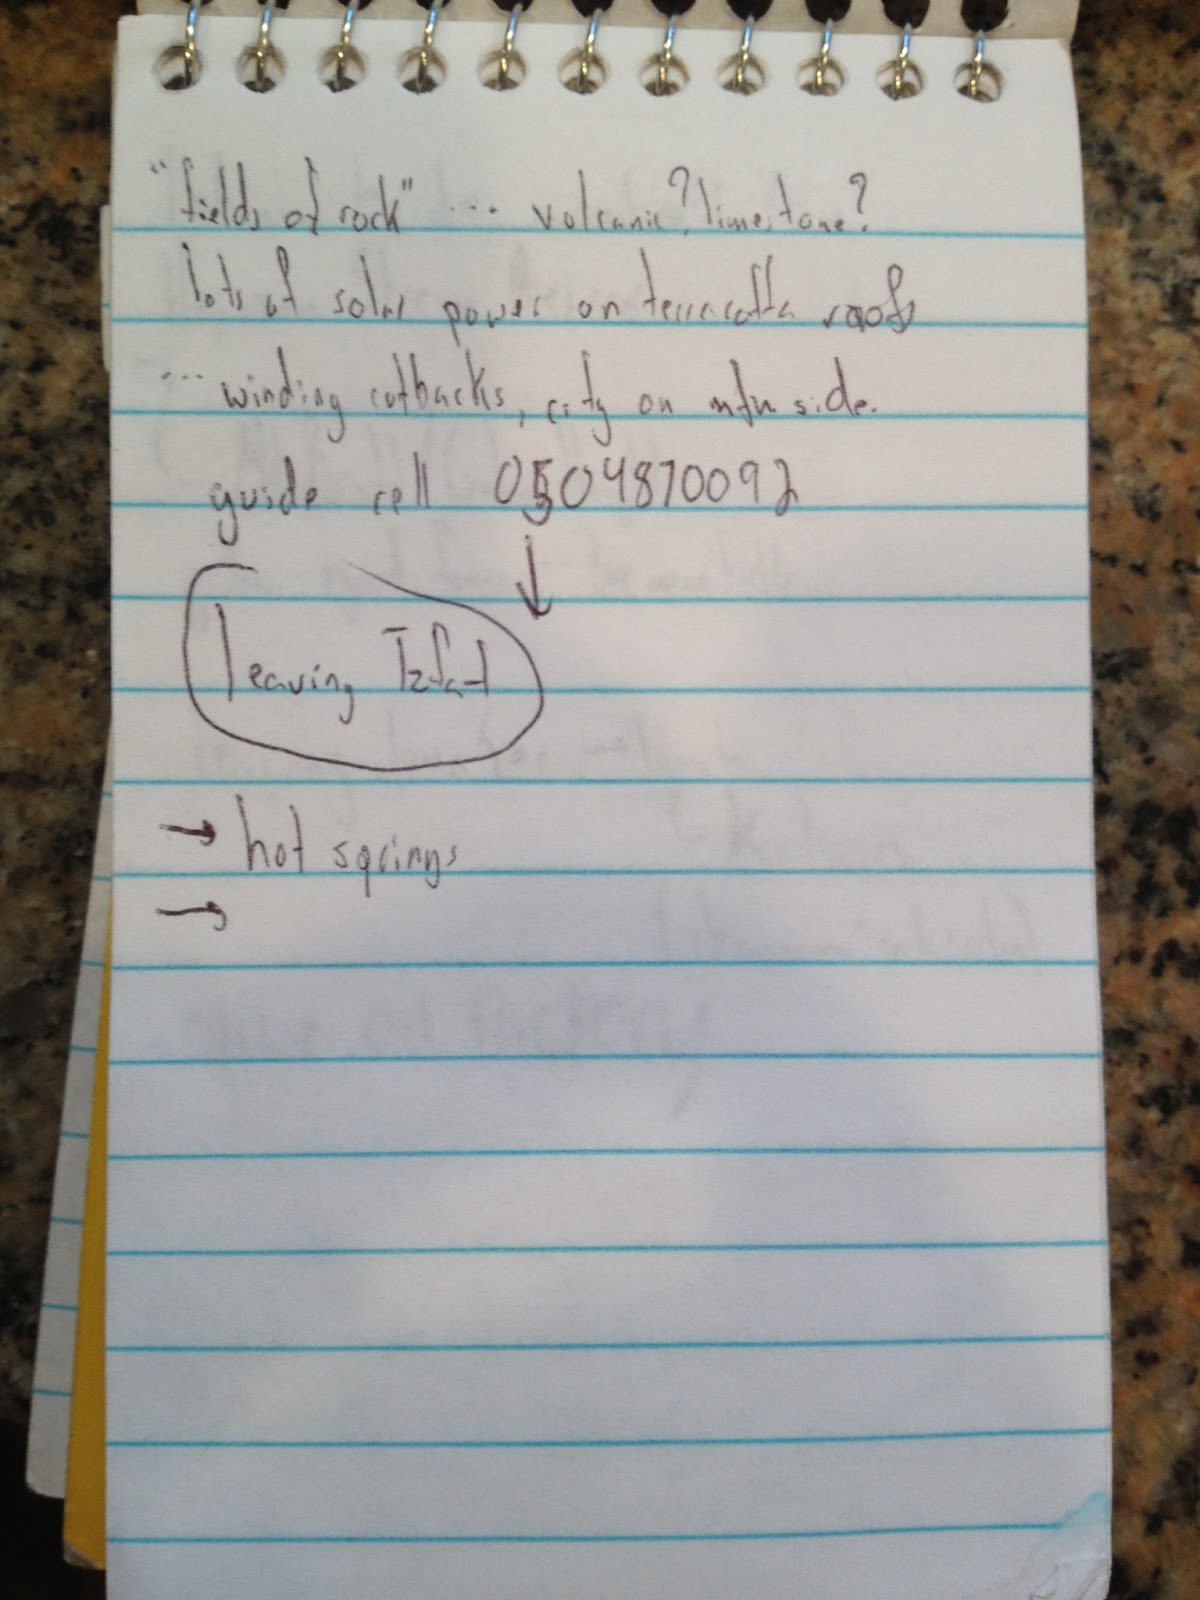 "fields of rock" ... volcanic? limestone?
lots of solar power on terracotta roofs
... winding cutbacks, city on mtn side.
guide cell 0504870092
↓
leaving Tzfat
→ hot springs
→